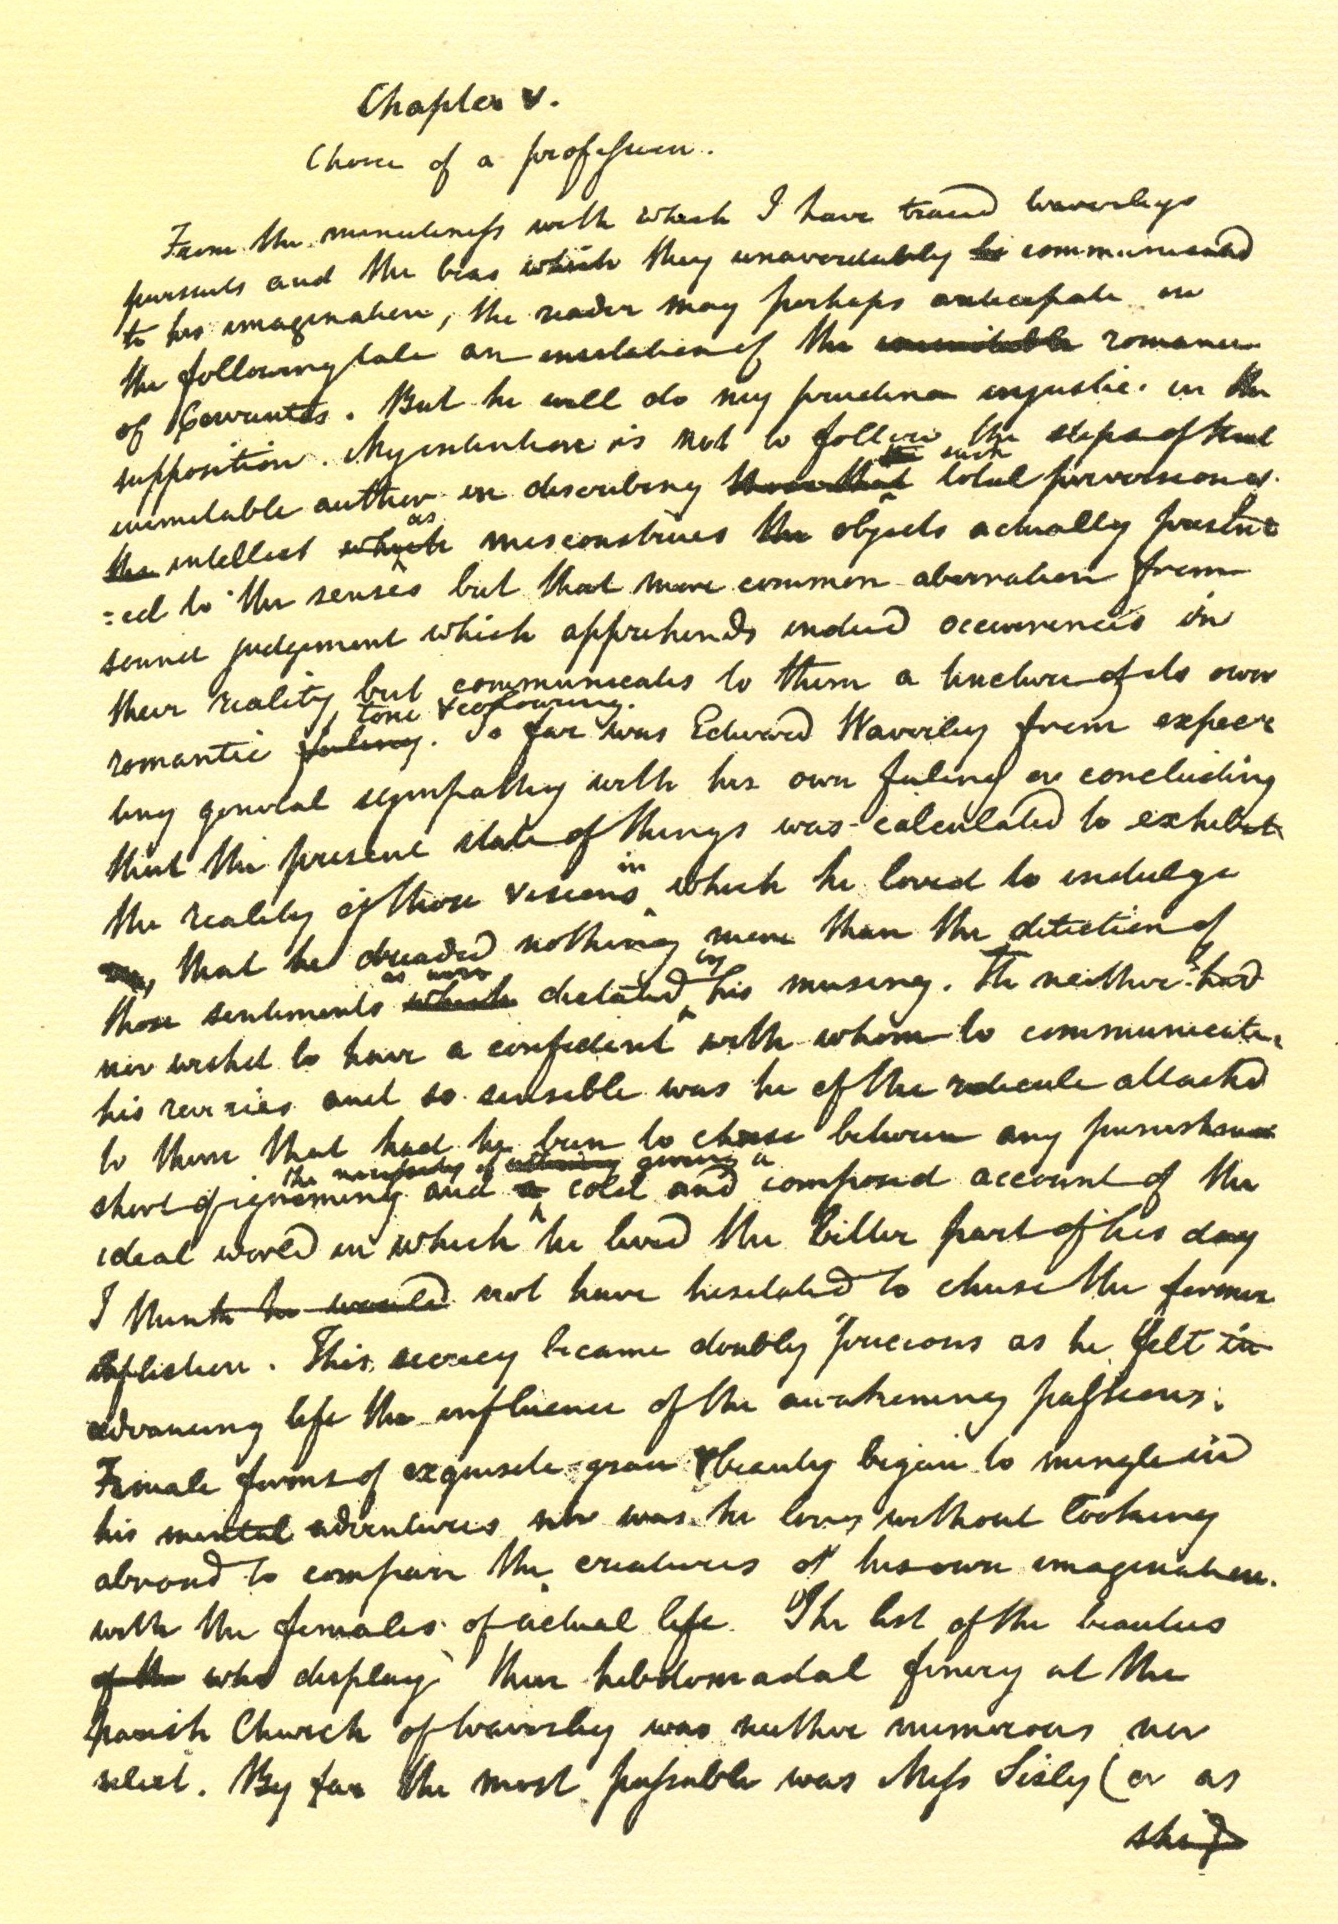 Chapter V.
Choice of a profession.
From the minuteness with which I have traced Waverleys
pursuits and the bias which they unavoidably communicated
to his imagination, the reader may perhaps anticipate in
the following tale an imitation of the inimitable romance
of Cervantes. But he will do my prudence injustice in the
supposition. My intention is not to follow the steps of that
inimitable author in describing such total perversion of
the intellect which as misconstrues the objects actually present
=ed to the senses but that more common aberration from
sound judgement which apprehends indeed occurrences in
their reality but communicates to them a tincture of its own
romantic feeling tone & colouring. So far was Edward Waverley from expec
ting general sympathy with his own feeling or concluding
that the present state of things was calculated to exhibit
the reality of those visions in which he loved to indulge
that he dreaded nothing more than the detection of
those sentiments which as were dictated by his musing. He neither had
nor wished to have a confident with whom to communicate
his reveries and so sensible was he of the redicule attached
to them that had he been to chose between any punishment
short of ignominy and the necessity of giving a cold and composed account of the
ideal world in which he lived the better part of his day
I think he would not have hesitated to chuse the former
infliction. This secrecy became doubly precious as he felt in
advancing life the influence of the awakening passions.
Female forms of exquisite grace & beauty began to mingle in
his mental adventures nor was he long without looking
abroad to compare the creatures of his own imagination
with the females of actual life. The list of the beauties
of the who display their hebdomadal finery at the
parish Church of Waverley was neither numerous nor
select. By far the most passable was Miss Sisly (or as
she